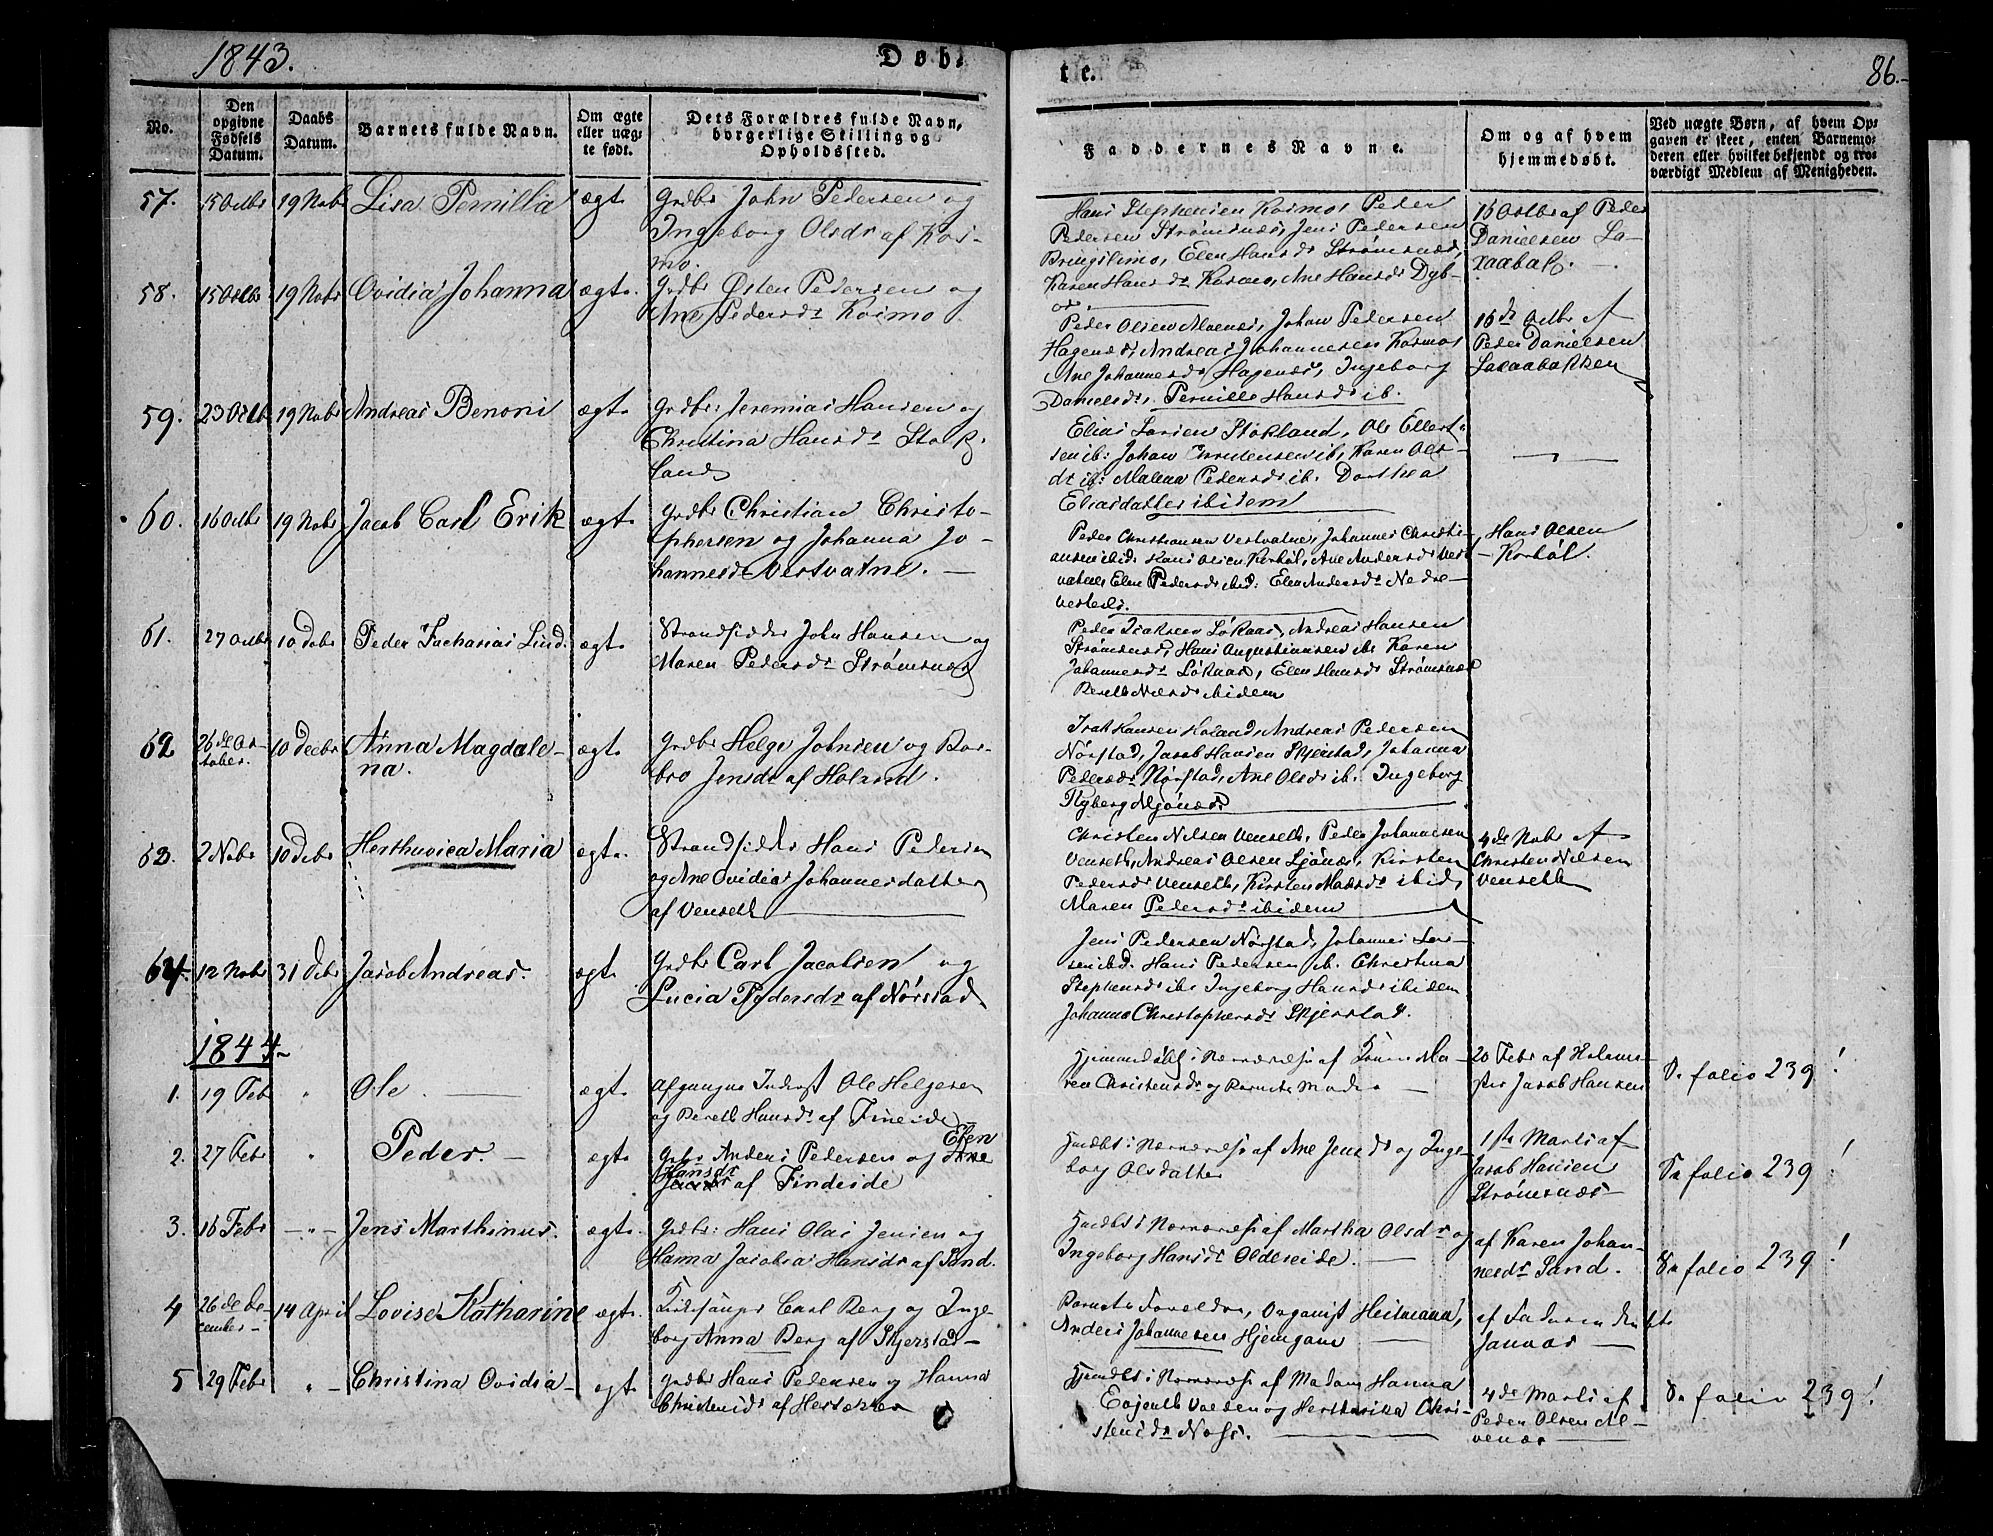 1843.
Døb-
te.
86.
No.
Den opgivne Fødsels Datum.
Daabs Datum.
Barnets fulde Navn.
Om ægte eller uægte født.
Dets Forældres fulde Navn, borgerlige Stilling og Opholdssted.
Faddernes Navne.
Om og af hvem hjemmedøbt.
Ved uægte Børn, af hvem Opgaven er skeet, enten Barnemoderen eller hvilket bekjendt og troværdigt Medlem af Menigheden.
57. 15 Octbr 19 Novbr Lisa Pernilla ægte Grdbr John Pedersen og
Ingeborg Olsdr af Kos-
mo.
Hans Stephensen Kosmo, Peder
Pedersen Strømsnæs, Jens Pedersen
Bringslimo, Elen Hansdr Strømsnæs,
Karen Hansdr Kosmo, Ane Hansdr Dyb-
16 Octbr af Peder
Danielsen La-
xaabak.
58. 15 Octbr 19 Novbr Ovidia Johanna ægte Grdbr Østen Pedersen og
Ane Pedersdr Kosmo
Peder Olsen Moenes, Johan Pedersen
Hagenes, Andreas Johannesen Kosmo,
Ane Johannesdr Hagenes, Ingeborg
Danielsdr, Pernille Hansdr ib.
16de Octbr af
Peder Danielsen
Laxaabakken
59. 23 Octb 19 Novbr Andreas Benoni ægte Grdbr: Jeremias Hansen og
Christina Hansdr Stok-
land
Elias Larsen Stokland, Ole Ellert-
sen ib: Johan Christensen ib, Karen Ols-
dr ib: Malena Pedersdr ib. Dorthea
Eliasdatter ibidem
60. 16 Octbr 19 Novbr Jacob Carl Erik ægte Grdbr Christian Christo-
phersen og Johanna Jo-
hannesdr Vestvatne.
Peder Christiansen Vestvatne, Johannes Christi-
ansen ibid: Hans Olsen Korhøl, Ane Andersdr Vest-
vatne, Elen Pedersdr ibid: Elen Andersdr Nedre-
Hans Olsen
Korhøl.
61. 27 Octbr 10 Debr Peder Zacharias Lind. ægte Strandsidder John Hansen og
Maren Pedersdr Strømsnæs
Peder Isaksen Løkaas, Andreas Hansen
Strømsnæs, Hans Augustinusen ib: Karen
Johannesdr Løkaas, Elen Hansdr Strømsnæs
Bereth Nilsdr ibidem
62 26de Oc-
tober. 10 Decbr Anna Magdale-
na. ægte Grdbr Helge Johnsen og Bar-
bro Jensdr af Holand.
Isak Hansen Holand, Andreas Pedersen
Nørstad, Jacob Hansen Skjerstad, Johanna
Pedersdr Nørstad, Ane Olsdr ib. Ingeborg
Ryberg Mjønæs
63. 2 Novbr 10 Debr Herthuvica Maria ægte. Strandsidder Hans Pedersen
og Ane Ovidia Johannesdatter
af Venseth
Christen Nilsen Venseth, Peder Johannesen
Venseth, Andreas Olsen Ljønæs, Kirsten
Pedersdr Venseth, Kirsten Madsdr ibid,
Maren Pedersdr ibidem
4de Novbr af
Christen Nilsen
Venseth
64. 12 Novbr 31 Debr Jacob Andreas. ægte Grdbr Carl Jacobsen og
Lucia Pedersdr af Nørstad
Jens Pedersen Nørstad, Johannes Lar-
sen ibd. Hans Pedersen ib. Christina
Stephensdr ib: Ingeborg Hansdr ibidem
Johanna Christophersdr Skjerstad.
1844
1. 19 Feb " Ole. ægte Afgangne Inderst Ole Helgesen
og Bereth Hansdr af Fineide
Hjemmedøbt i Nærværelse af Ma-
ren Christensdr og Barnets Moder
20 Febr af Holme-
Jacob Hansen
folio 239!
2. 27 Febr " Peder. ægte Grbr Anders Pedersen og Ane Elen
Hansdr af Findeide
Hmdbt i Nærværelse af Ane Jensdr og Inge-
borg Olsdatter
1ste Marts af
Jacob Hansen
Strømsnæs
folio 239!
3. 16 Febr " Jens Marthinus. ægte. Grdbr: Hans Olai Jensen og
Hanna Jacobia Hansdr af Sand.
Hmdbt i Nærværelse af Martha Olsdr og
Ingeborg Hansdr Oldereide.
af Karen Johan-
nesdr Sand.
folio 239!
4 26 de De-
cember 14 April Lovise Katharine ægte. Kirkesanger Carl Berg og Inge-
borg Anna Berg af Skjerstad
Barnets Forældre, Organist Heitmann,
Anders Johannesen Hjemgam
af Faderen den 1ste
Januar
5 29 Febr " Christina Ovidia ægte Grdbr Hans Pedersen og Hanna
Christensdr af
Hjmdbt i Nærværelse af Madam Hanna
Valden og Herthevika Chri-
stensdr Næss.
4de Marts af
Peder Olsen Al-
venæs
folio 239!